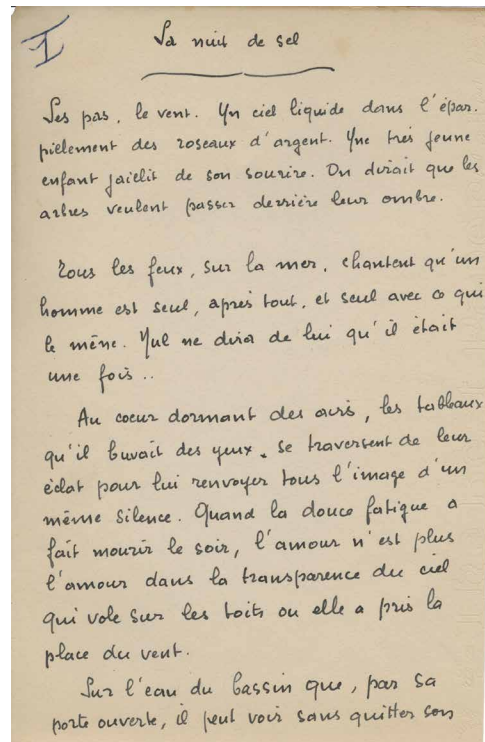 I
La nuit de sel
Les pas, le vent. Un ciel liquide dans l'épar.
pillement des roseaux d'argent. Une très jeune
enfant jaillit de son sourire. On dirait que les
arbres veulent passer derrière leur ombre.
Tous les feux, sur la mer, chantent qu'un
homme est seul, après tout, et seul avec ce qui
le mène. Nul ne dira de lui qu'il était
une fois..
Au coeur dormant des
les tableaux
qu'il buvait des yeux. se traversent de leur
éclat pour lui renvoyer tous l'image d'un
même silence. Quand la douce fatigue a
fait mourir le soir, l'amour n'est plus
l'amour dans la transparence du ciel
qui vole sur les toits ou elle a pris la
place du vent.
Sur l'eau du bassin que, par sa
porte ouverte, il peut voir sans quitter son